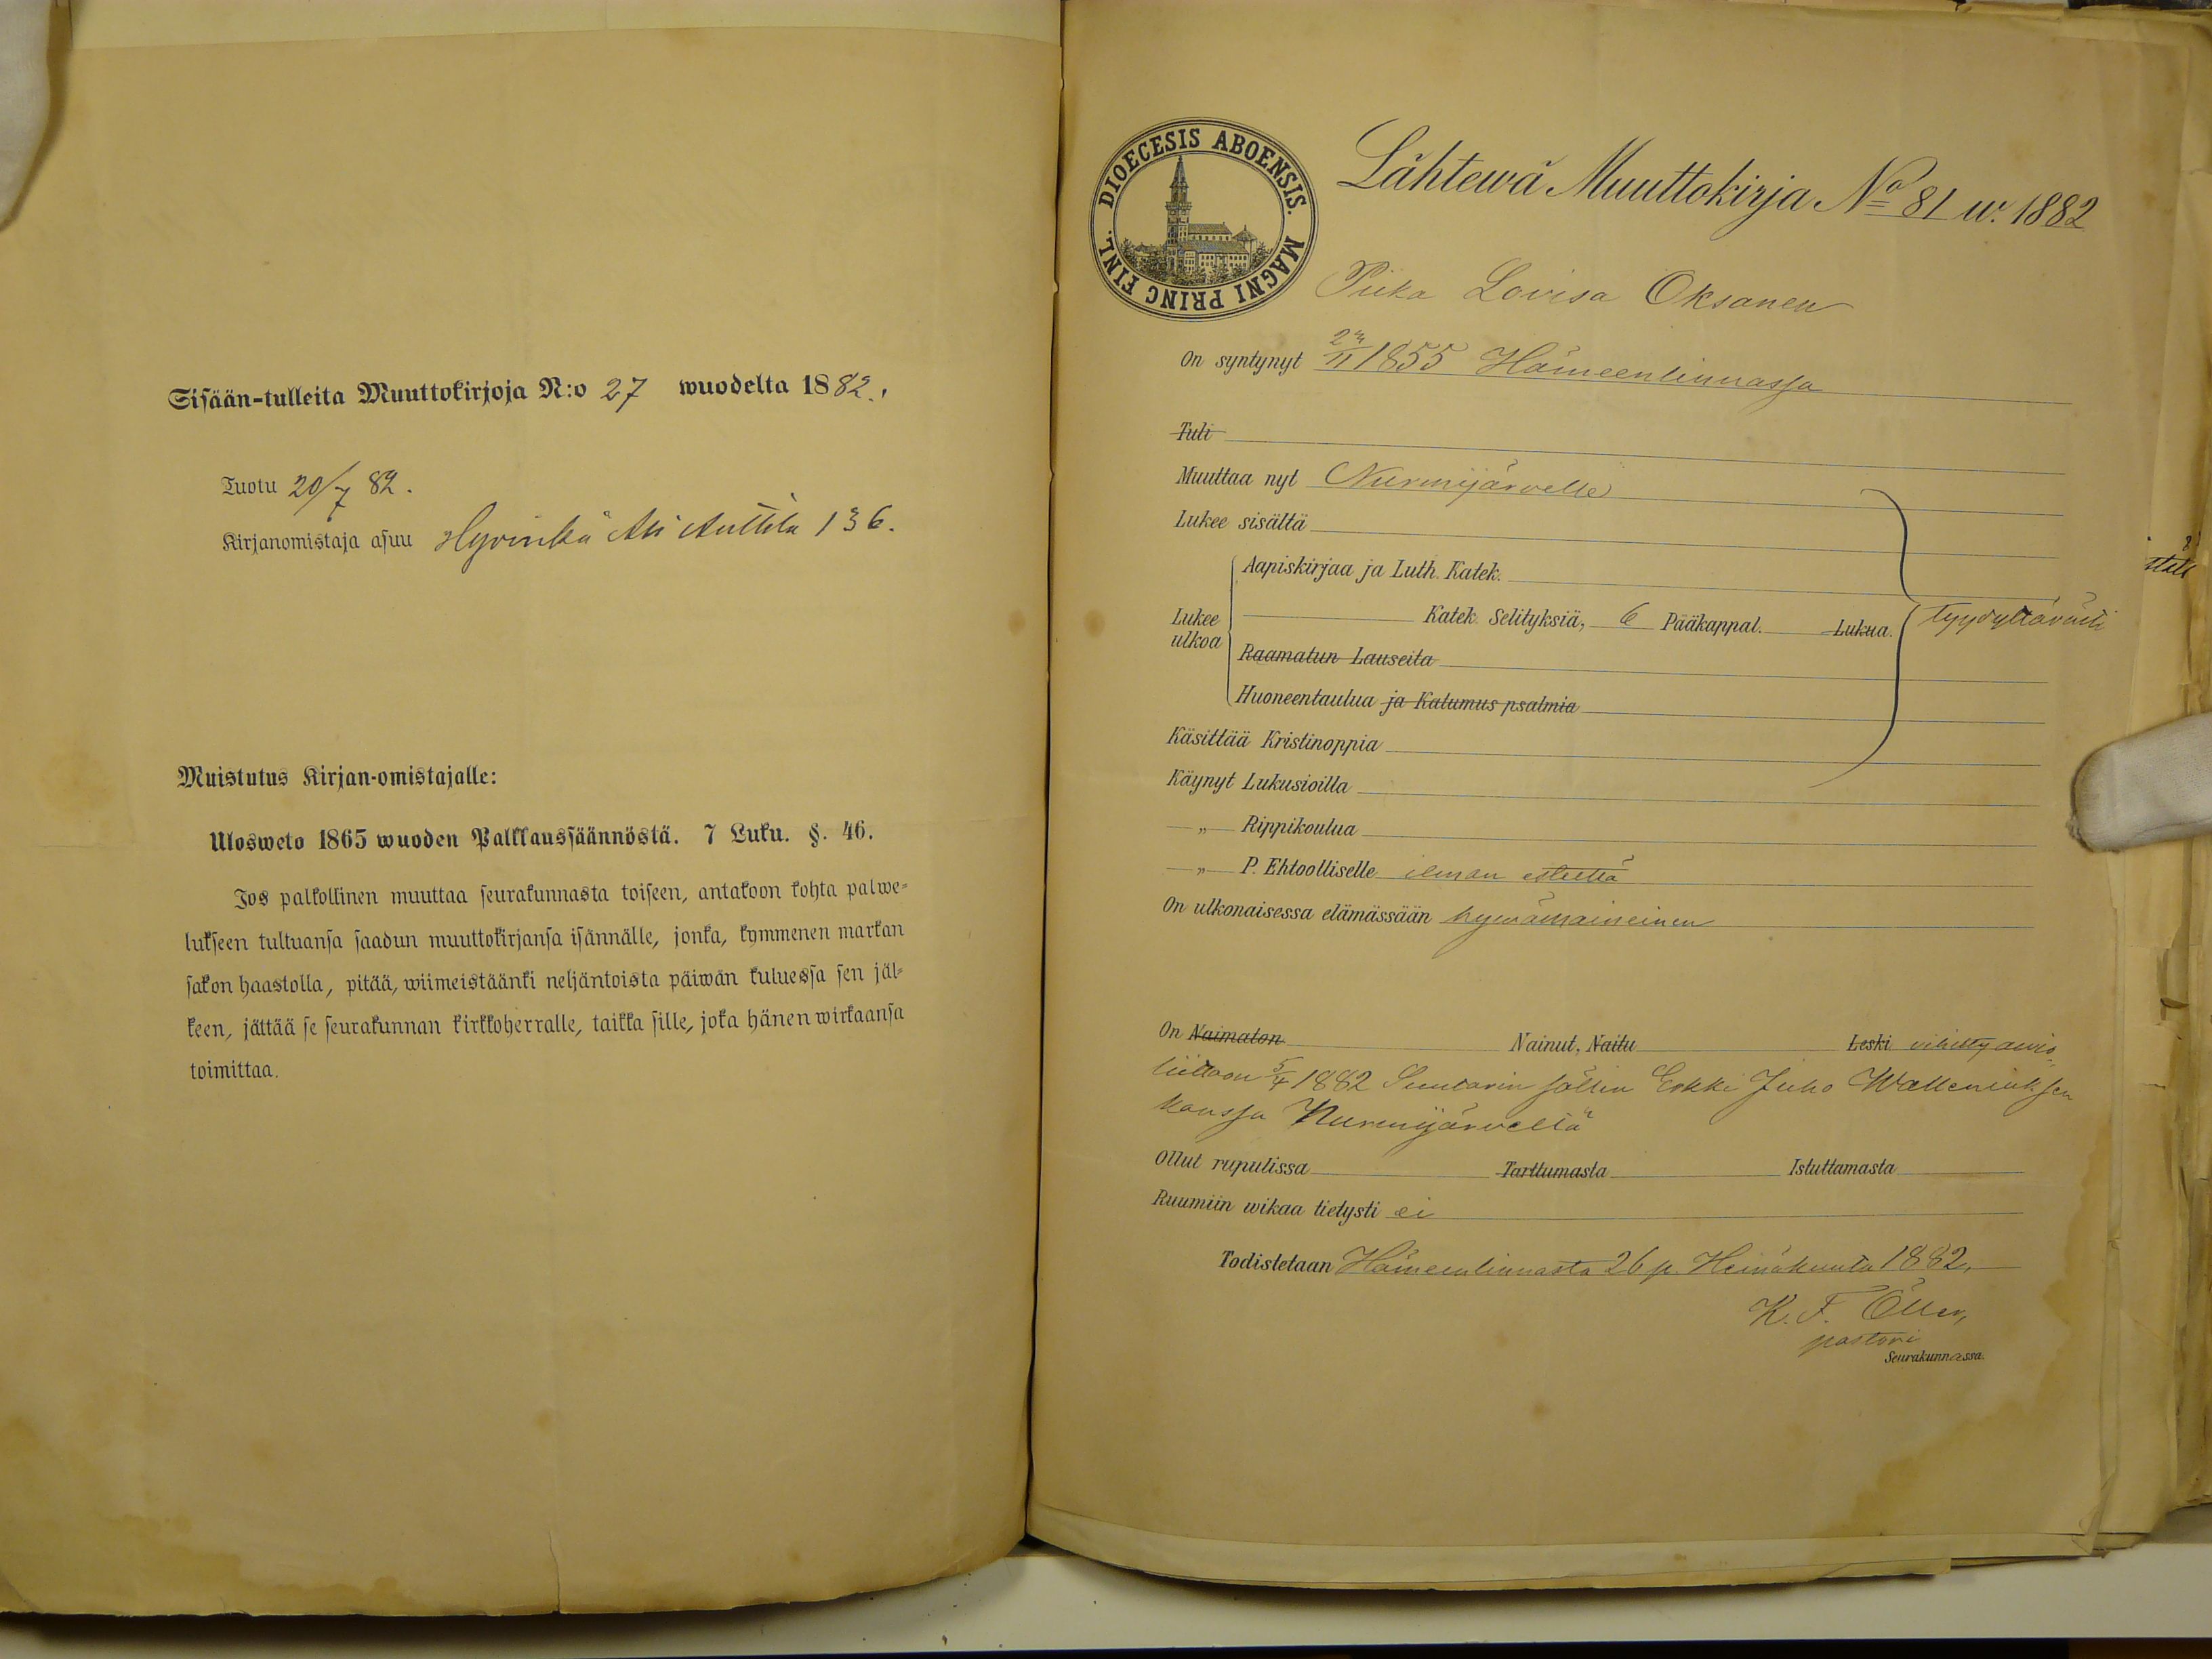 Sisään-tulleita Muuttokirjoja N:o 27 wuodelta 1882.
Tuotu 20/7 82.
Kirjanomistaja asuu Hyvinkä Ali Anttila 136.
Muistutus Kirjan-omistajalle:
Ulosweto 1865 wuoden Palkkaussäännöstä. 7 Luku. §. 46.
Jos palkollinen muuttaa seurakunnasta toiseen, antakoon kohta palwe=
lukseen tultuansa saadun muuttokirjansa isännälle, jonka, kymmenen markan
sakon haastolla, pitää, wiimeistäänki neljäntoista päiwän kuluessa sen jäl=
keen, jättää se seurakunnan kirkkoherralle, taikka sille, joka hänen wirkaansa
toimittaa.
DIOECESIS ABOENSIS. MAGNI PRINC FINL.
Lähtewä Muuttokirja No 81 w. 1882
Piika Lovisa Oksanen
On syntynyt 1855 Hämeenlinnassa
Tuli
Muuttaa nyt Nurmijärvelle
Lukee sisältä
Aapiskirjaa ja Luth. Katek.
Lukee ulkoa
Katek. Selityksiä, 6 Pääkappal. Lukua. tyydyttävästi
Raamatun Lauseita
Huoneentaulua ja Katumus psalmia
Käsittää Kristinoppia
Käynyt Lukusioilla
—„— Rippikoulua
—„— P. Ehtoolliselle ilman estettä
On ulkonaisessa elämässään hywämaineinen
On Naimaton Nainut, Naitu Leski vihitty avio-
liittoon 5/4 1882 Suutarin sällin Erkki Juho Walleniuksen
kanssa Nurmijärveltä
Ollut rupulissa Tarttumasta Istuttamasta
Ruumiin wikaa tietysti ei
Todistetaan Hämeenlinnasta 26 p. Heinäkuuta 1882,
K. F. Öller,
pastori
Seurakunnassa.